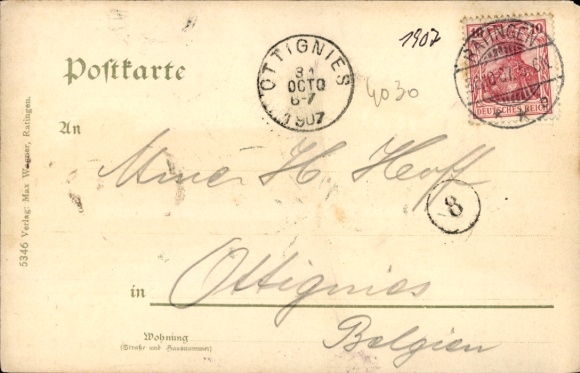 1907
10
RATINGEN
DEUTSCHES REICH
OTTIGNIES
31
OCTO
6-7
1907
4030
Postkarte
An
H. Hoff
8
in Ottignies
Belgien
Wohnung
(Straße und Hausnummer)
5346 Verlag: Max Wegner, Ratingen.